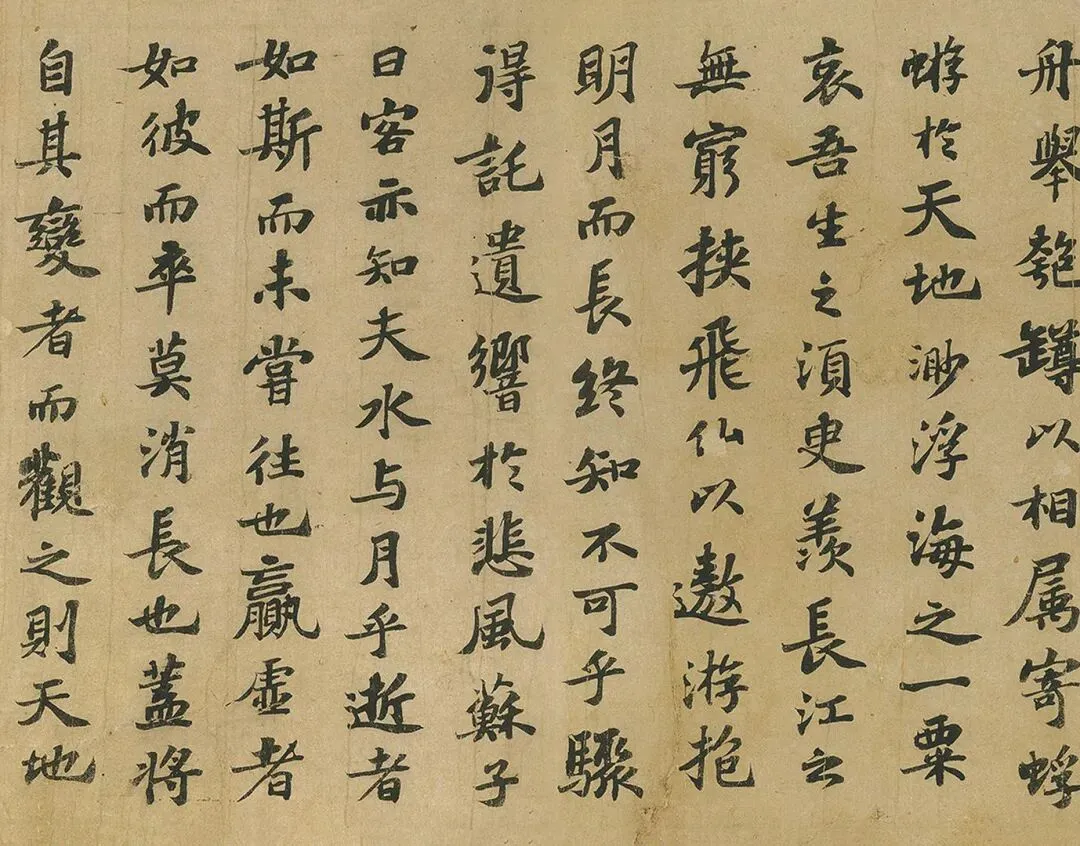 舟舉匏罇以相属寄蜉
蝣於天地渺浮海之一粟
哀吾生之須臾羨長江之
無窮挾飛仙以遨游抱
明月而長終知不可乎驟
得託遺響於悲風蘇子
曰客亦知夫水与月乎逝者
如斯而未嘗往也贏虛者
如彼而卒莫消長也蓋將
自其變者而觀之則天地